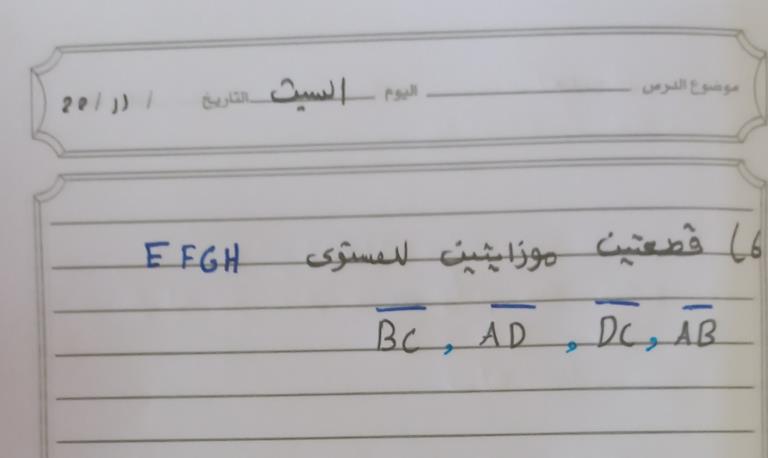 موضوع الدرس اليوم السبت التاريخ / 11 / 22
6) قطعتين موزايتين للمستوى EFGH
AB , DC , AD , BC